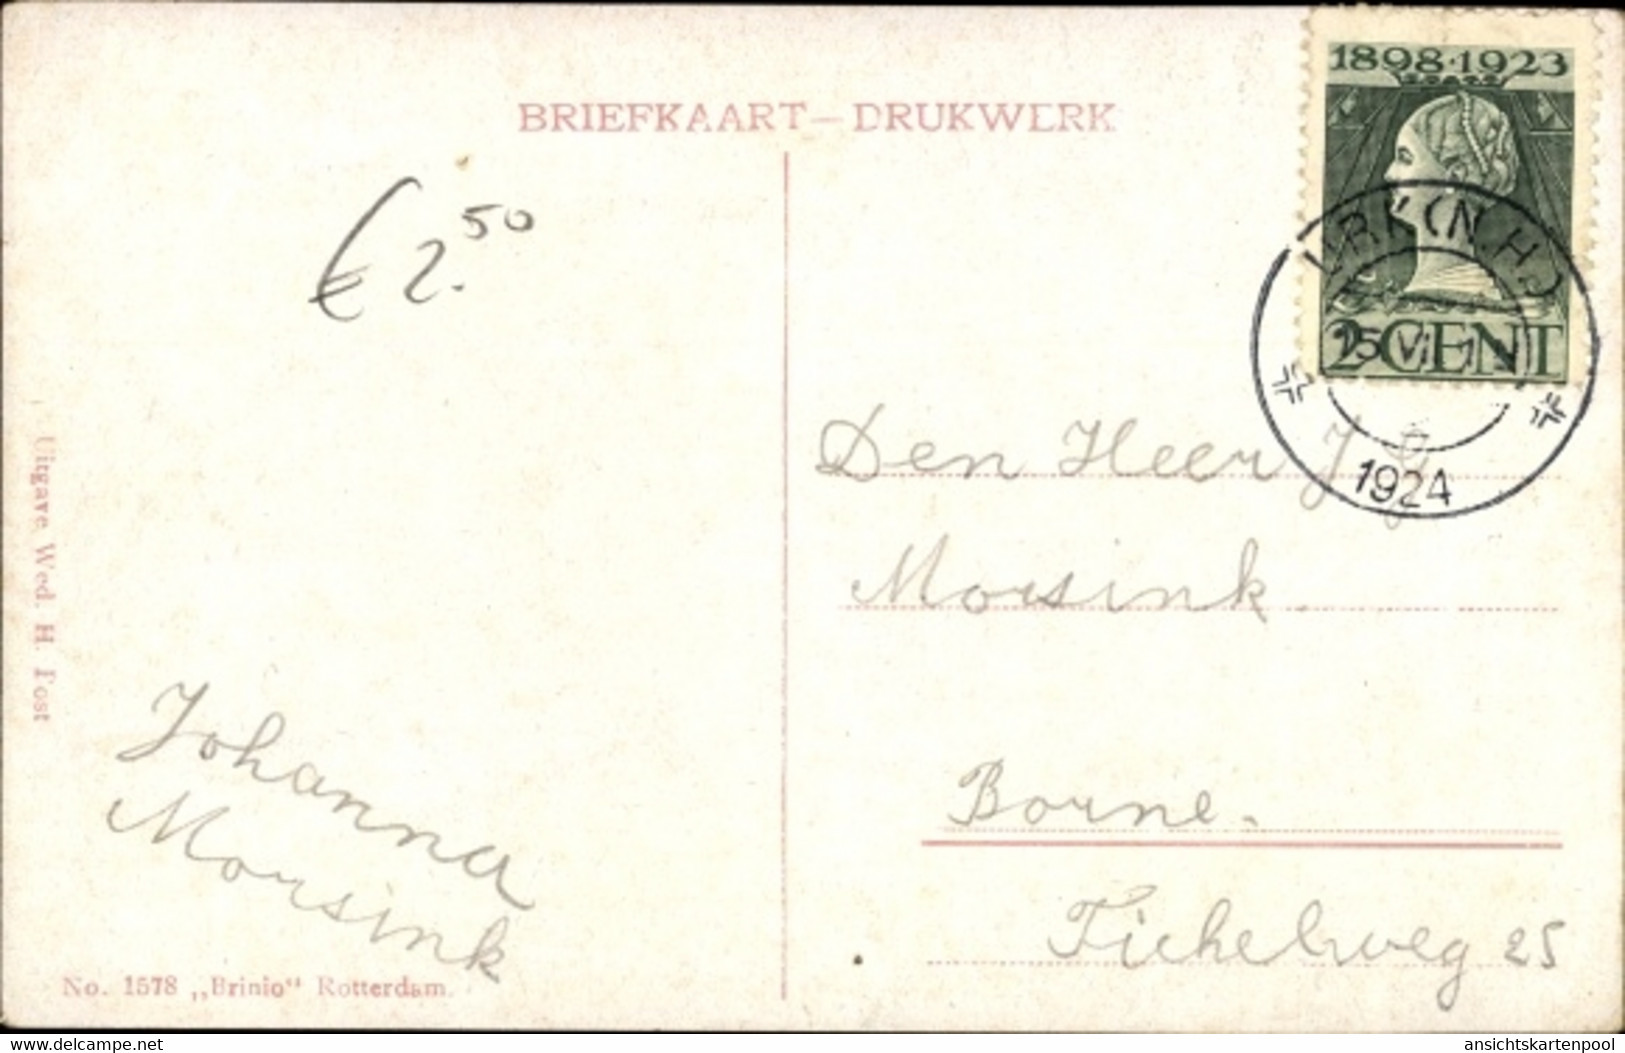 BRIEFKAART — DRUKWERK
1898·1923
URK (N.H.)
2 CENT
1924
€ 2.50
Den Heer J G
Morsink.
Borne.
Tichelweg 25
Uitgave Wed. H. Post
Johanna
Morsink
No. 1578 „Brinio" Rotterdam.
delcampe.net
ansichtskartenpool